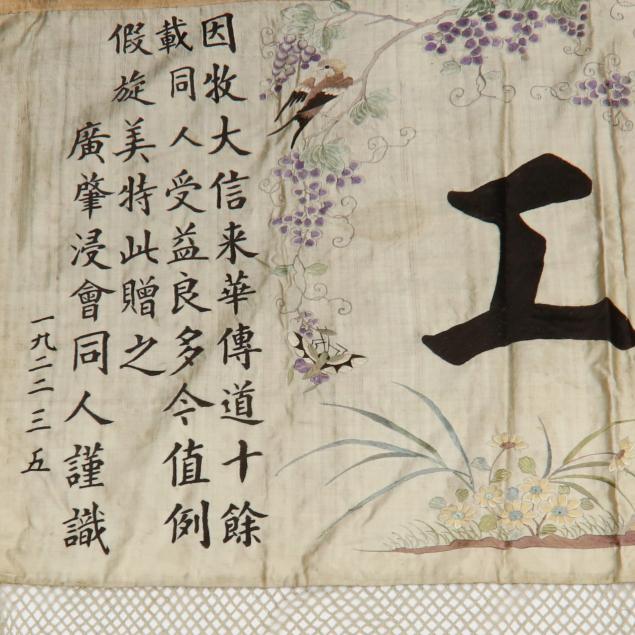 工
因牧大信来華傳道十餘
載同人受益良多今值例
假旋美特此贈之
廣肇浸會同人謹識
一九二二三五